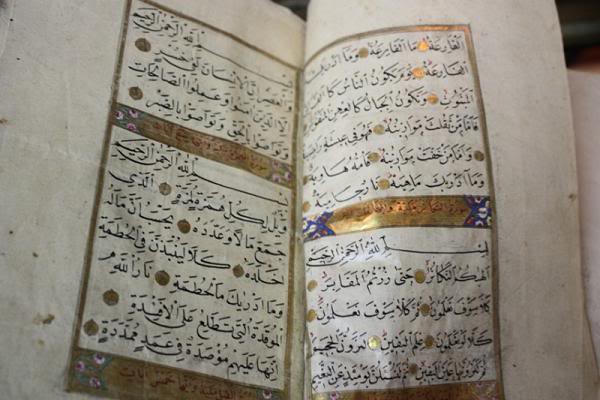 اَلْقَارِعَةُ مَا الْقَارِعَةُ وَمَا اَدْرٰيكَ
الْقَارِعَةُ يَوْمَ يَكُونُ النَّاسُ
الْمَبْثُوثِ وَتَكُونُ الْجِبَالُ كَالْعِهْنِ الْمَنْفُوشِ
فَاَمَّا مَنْ ثَقُلَتْ مَوَازِينُهُ فَهُوَ فِي عِيشَةٍ
وَاَمَّا مَنْ خَفَّتْ مَوَازِينُهُ فَاُمُّهُ هَاوِيَةٌ
وَمَا اَدْرٰيكَ مَاهِيَهْ نَارٌ حَامِيَةٌ
بِسْمِ اللهِ الرَّحْمٰنِ الرَّحِيمِ
اَلْهٰيكُمُ التَّكَاثُرُ حَتّٰى زُرْتُمُ الْمَقَابِرَ
كَلَّا سَوْفَ تَعْلَمُونَ ثُمَّ كَلَّا سَوْفَ تَعْلَمُونَ
كَلَّا لَوْ تَعْلَمُونَ عِلْمَ الْيَقِينِ لَتَرَوُنَّ الْجَحِيمَ
ثُمَّ لَتَرَوُنَّهَا عَيْنَ الْيَقِينِ ثُمَّ لَتُسْئَلُنَّ يَوْمَئِذٍ عَنِ النَّعِيمِ
بِسْمِ اللهِ الرَّحْمٰنِ الرَّحِيمِ
وَالْعَصْرِ اِنَّ الْاِنْسَانَ لَفِي خُسْرٍ
اِلَّا الَّذِينَ اٰمَنُوا وَعَمِلُوا الصَّالِحَاتِ
وَتَوَاصَوْا بِالْحَقِّ وَتَوَاصَوْا بِالصَّبْرِ
بِسْمِ اللهِ الرَّحْمٰنِ الرَّحِيمِ
وَيْلٌ لِكُلِّ هُمَزَةٍ لُمَزَةٍ اَلَّذِي
جَمَعَ مَالًا وَعَدَّدَهُ يَحْسَبُ اَنَّ مَالَهُ
اَخْلَدَهُ كَلَّا لَيُنْبَذَنَّ فِي الْحُطَمَةِ
وَمَا اَدْرٰيكَ مَا الْحُطَمَةُ نَارُ اللهِ
الْمُوقَدَةُ الَّتِي تَطَّلِعُ عَلَى الْاَفْئِدَةِ
اِنَّهَا عَلَيْهِمْ مُؤْصَدَةٌ فِي عَمَدٍ مُمَدَّدَةٍ
خمس ايات